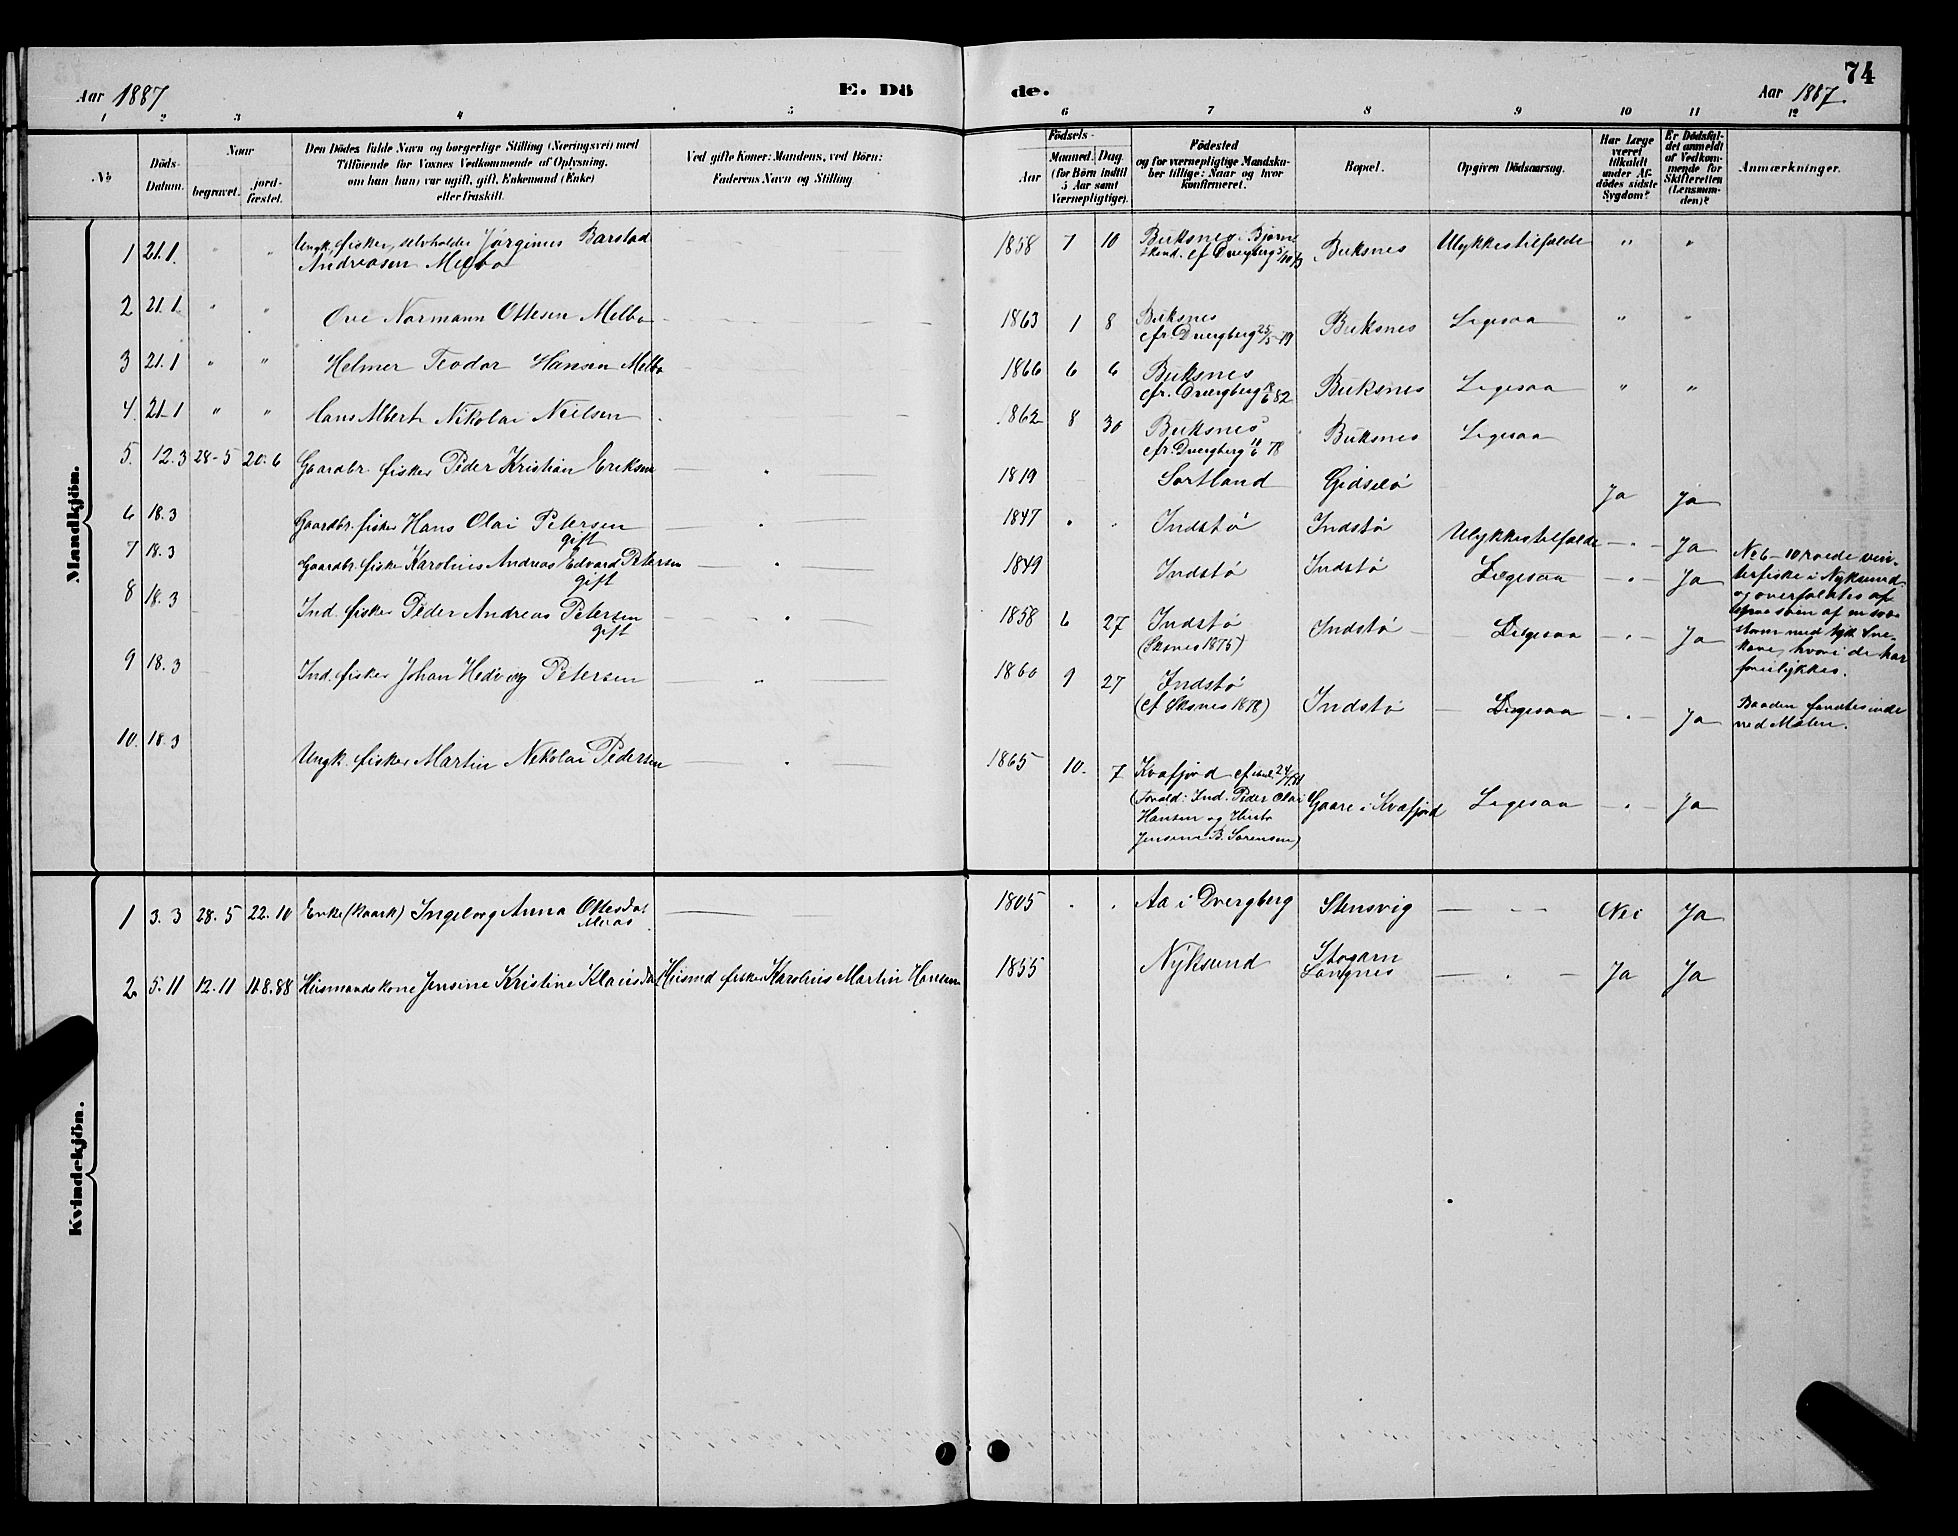 74
Aar 1887
E. Dö
de.
Aar 1887.
1 2 3 4 5 6 7 8 9 10 11 12
No
Döds-
Datum.
Naar
begravet.
jord-
fæstet.
Den Dödes fulde Navn og borgerlige Stilling (Næringsvei) med
Tilföiende for Voxnes Vedkommende af Oplysning,
om han (hun) var ugift, gift, Enkemand (Enke)
eller fraskilt.
Ved gifte Koner: Mandens, ved Börn:
Faderens Navn og Stilling
Födsels-
Aar
Maaned. Dag
(for Börn indtil
5 Aar samt
Værnepligtige).
Födested
og for værnepligtige Mandska-
ber tillige: Naar og hvor
konfirmeret.
Bopæl.
Opgiven Dödsaarsag.
Har Læge
været
tilkaldt
under Af-
dödes sidste
Sygdom?
Er Dödsfal-
det anmeldt
af Vedkom-
mende for
Skifteretten
(Lensman-
den)?
Anmærkninger.
Mandkjön.
1 21.1. " Ungk. fisker, selvholder Jørginus Barstad 1858 7 10 Buksnes i Bjørn Buksnes Ulykkestilfælde " "
Andreasen Melbo skind. cf Dvergberg
2 21.1 " " Ove Normann Ottesen Melbo 1863 1 8 Buksnes Buksnes Ligesaa " "
cfr. Dvergberg 25/5 79
3 21.1 " " Helmer Teodor Hansen Melbo 1866 6 6 Buksnes Buksnes Ligesaa " "
cfr. Dvergberg 82
4. 21.1 " " Hans Albert Nikolai Nielsen 1862 8 30 Buksnes Buksnes Ligesaa
cfr. Dvergberg 78
5. 12.3 28-5 20.6 Gaardbr. fisker Peder Kristian Eriksen " 1819 Sortland Gidselø Ja Ja
6 18.3 Gaardbr. fisker Hans Olai Petersen " 1847 " " Indstø Indstø Ulykkestilfælde " Ja
gift
7 18.3 Gaardbr. fisker Karolius Andreas Edvard Petersen " 1849 Indstø Indstø Ligesaa " Ja
gift
8 18.3 Ind. fisker Peder Andreas Petersen " 1858 6 27 Indstø Indstø Ligesaa " Ja
gift (Øksnes 1875)
9 18.3 Ind. fisker Johan Hedevig Petersen " 1860 9 27 Indstø Indstø Ligesaa " Ja
(cf Øksnes 1878)
10. 18.3 Ungk. fisker Martin Nikolai Pedersen " 1865 10. 7 Kvæfjord Gaare i Kvæfjord Ligesaa " Ja
(Foræld: Ind. Peder Olai
Hansen og Hustr
Jensine B. Sørensen)
No 6-10 roede vin-
terfiske i Nyksund
og overfaldtes af
storm med tyk Sne-
kave, hvori de har
forulykkes.
Baaden fandtes inde
ved Malen.
Kvindekjön.
1 3.3 28.5 22.10 Enke (Kaark) Ingeborg Anna Ottesdat 1805 " " Aa i Dvergberg Stensvig " Nei Ja
2. 5.11 12.11 11.8.88 Husmandskone Jensine Kristine Klausdat Husmd fisker Karolius Martin Hansen 1855 Nyksund Langnes " Ja Ja